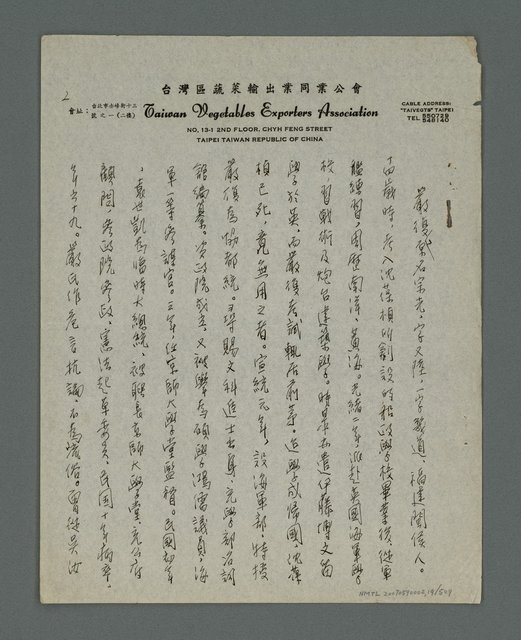 台灣區蔬菜輸出業同業公會
會址：台北市赤峰街十三號之一（二樓）
Taiwan Vegetables Exporters Association
NO. 13-1 2ND FLOOR, CHYH FENG STREET
TAIPEI TAIWAN REPUBLIC OF CHINA
CABLE ADDRESS:
"TAIVEGTS" TAIPEI
TEL 550728
548140
2
嚴復榮名宗光，字又陵，一字幾道，福建閩侯人。
十四歲時，考入沈葆楨所創設的船政學校畢業後，從軍
艦練習，周歷南洋、黃海。光緒二年，派赴英國海軍學
校，習戰術及炮台建築學。時日本亦遣伊藤博文留
學於英，而嚴復考試輒居前茅。迨學成歸國，沈葆
楨已死，竟無用之者。宣統元年，設海軍部，特授
嚴復為協都統。又尋賜文科進士出身，充學部名詞
館編纂。資政院成立，又被舉為碩學鴻儒議員，海
軍一等參謀官。三年，任京師大學堂監督。民國初年
，袁世凱為臨時大總統，被聘長京師大學堂，充公府
顧問，參政院參政，憲法起草委員，民國十年病卒，
年六十九。嚴氏作危言抗論，不為流俗。曾從吳汝
NMTL 20070590002,19/509